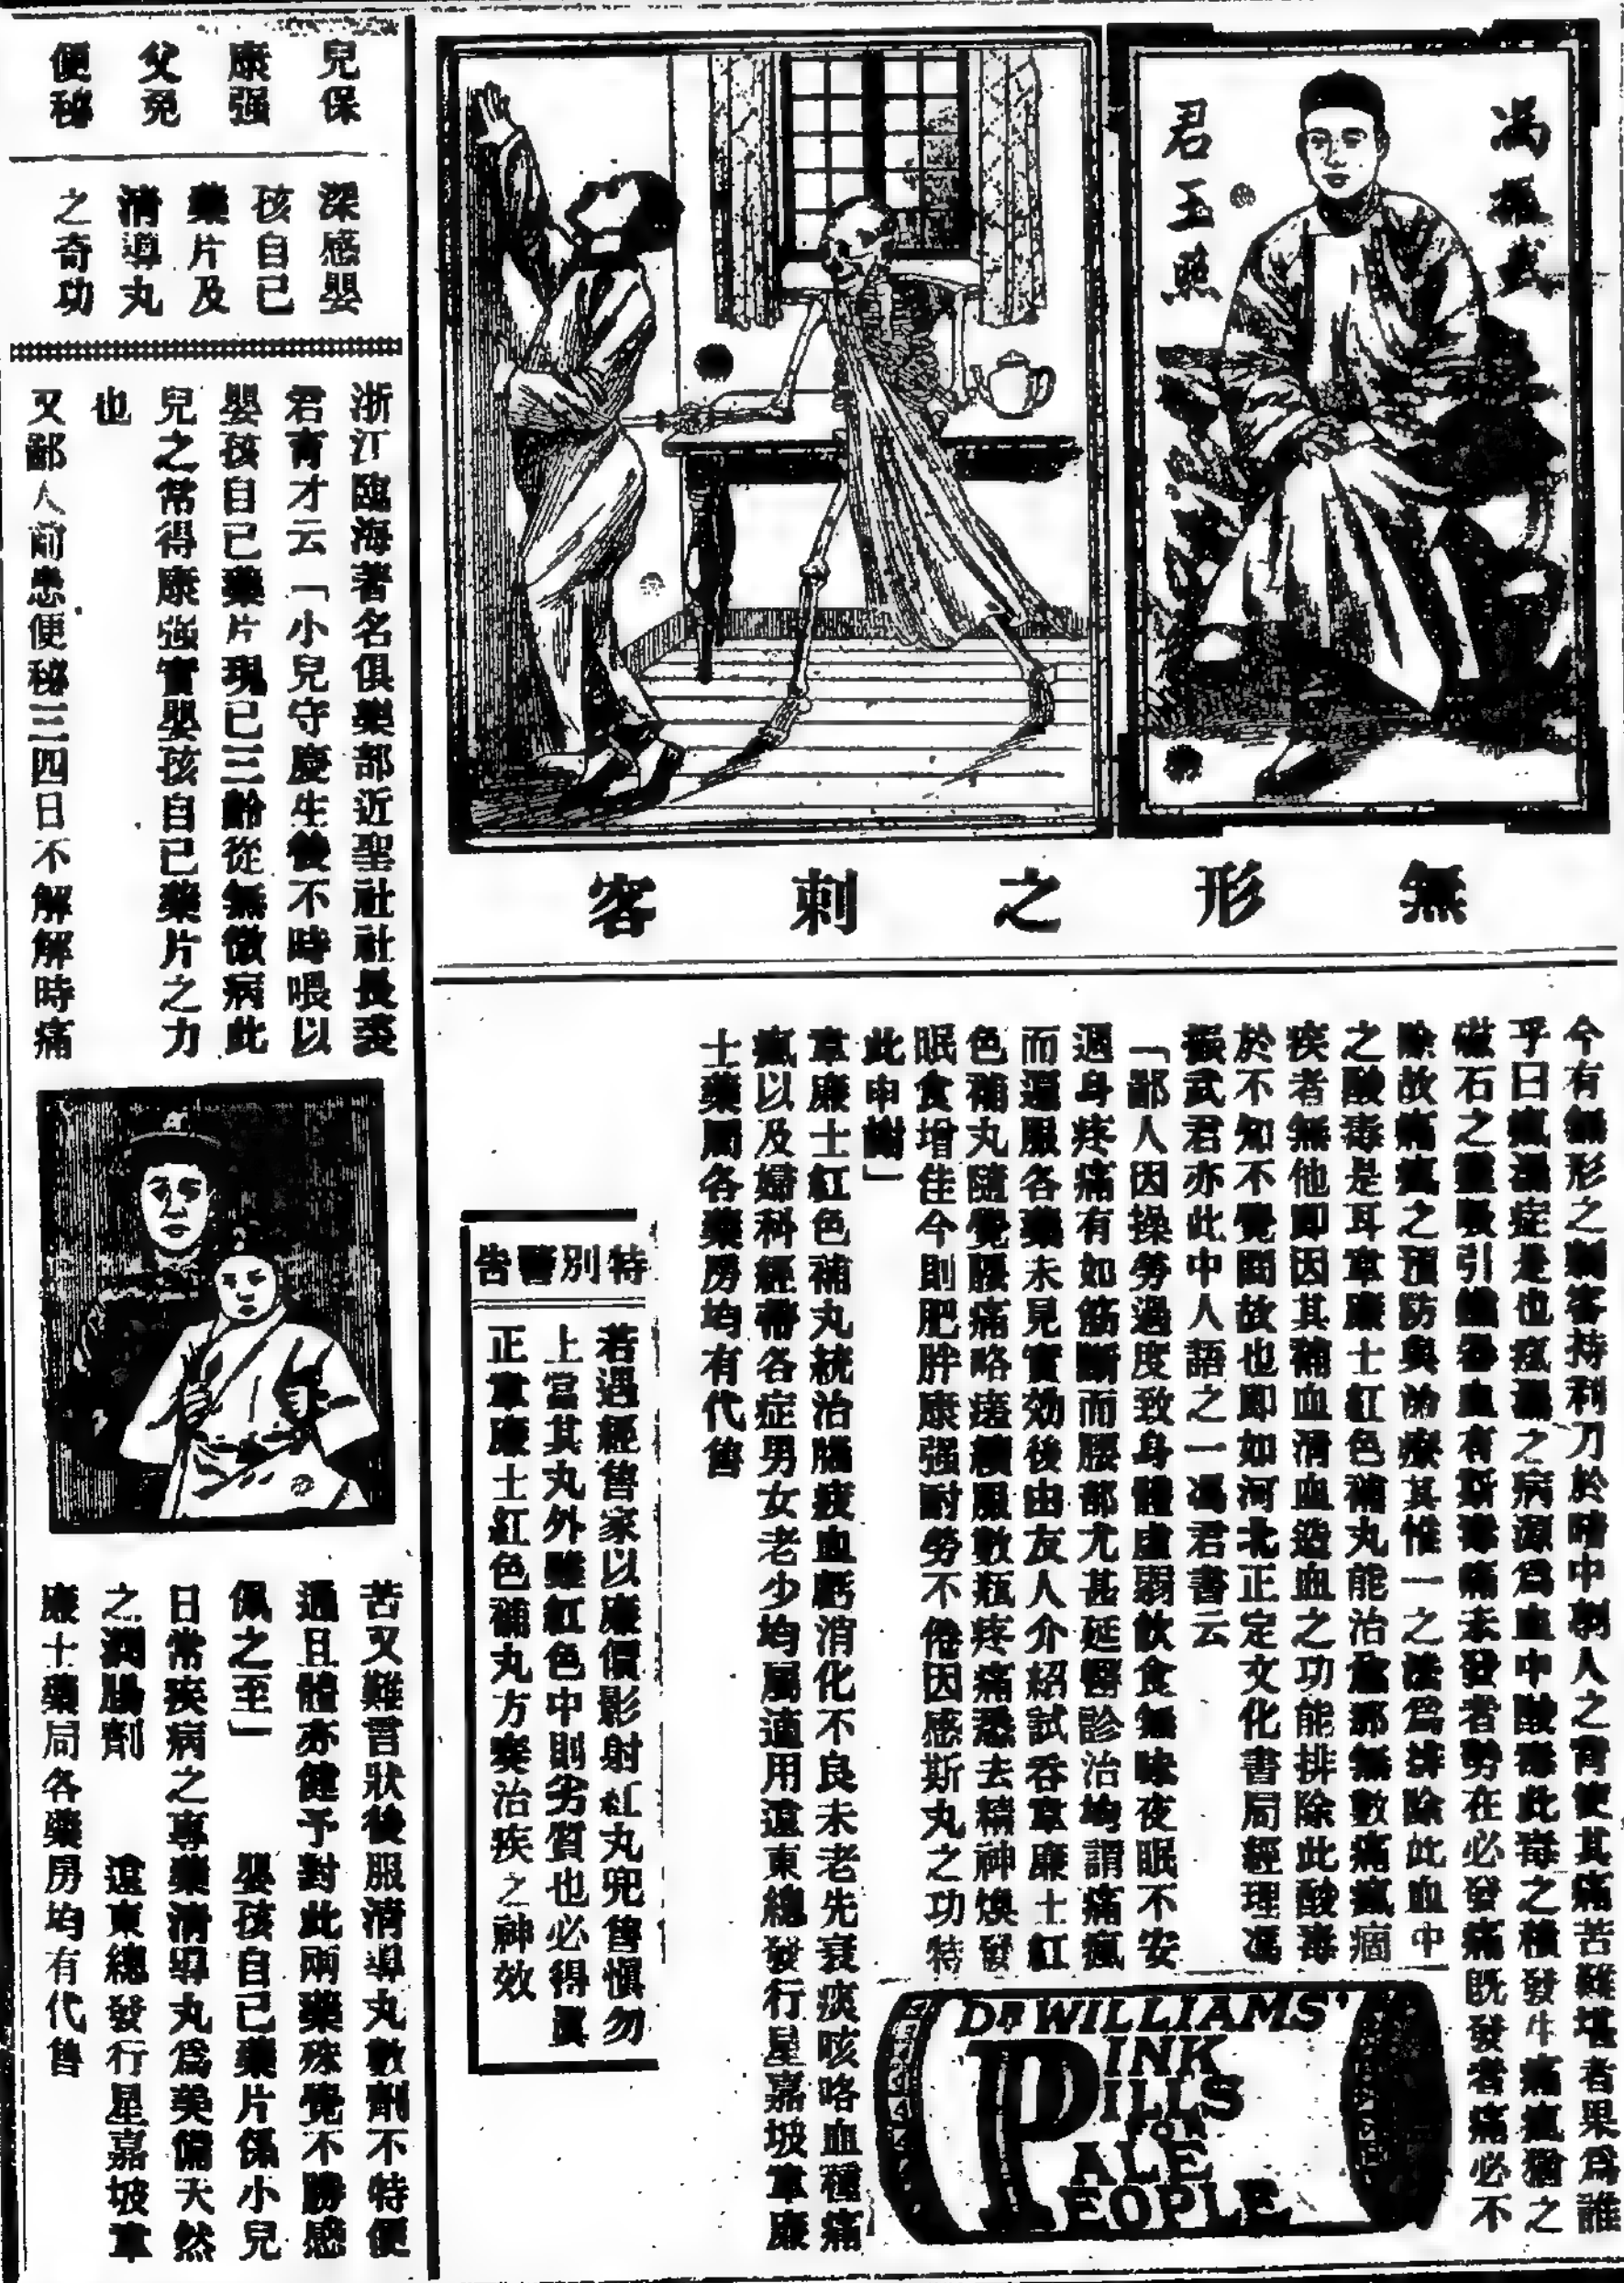 馮振武
君玉照
無形之刺客
今有無形之刺客持利刀於暗中刺人之背使其痛苦難堪者果爲誰
乎曰瘋濕症是也瘋濕之病源爲血中酸毒此毒之積發生痛瘋猶之
磁石之靈吸引鐵器血有斯毒痛未發者勢在必發痛既發者痛必不
除故痛瘋之預防與治療其惟一之法爲排除此血中
之酸毒是耳韋廉士紅色補丸能治愈那無數痛瘋痼
疾者無他即因其補血清血造血之功能排除此酸毒
於不知不覺間故也即如河北正定文化書局經理馮
振武君亦此中人語之一馮君書云
「鄙人因操勞過度致身體虛弱飲食無味夜眠不安
週身疼痛有如筋斷而腰部尤甚延醫診治均謂痛瘋
而遍服各藥未見實効後由友人介紹試吞韋廉士紅
色補丸隨覺腰痛略瘥續服數瓶疼痛悉去精神煥發
眠食增佳今則肥胖康强耐勞不倦因感斯丸之功特
此申謝」
韋廉士紅色補丸統治腦疲血虧消化不良未老先衰痰咳咯血種痛
瘋以及婦科經帶各症男女老少均屬適用遠東總發行星嘉坡韋廉
士藥局各藥房均有代售
DR WILLIAMS'
PINK
PILLS
FOR
PALE
PEOPLE
特別警告
若遇經售家以廉價影射紅丸兜售愼勿
上當其丸外雖紅色中則劣質也必得眞
正韋廉士紅色補丸方奏治疾之神效
兒保
康强
父免
便秘
深感嬰
孩自己
藥片及
清導丸
之奇功
浙江臨海著名俱樂部近聖社社長裘
君育才云「小兒守慶生後不時喂以
嬰孩自己藥片現已三齡從無微病此
兒之常得康強實嬰孩自己藥片之力
也
又鄙人前患便秘三四日不解解時痛
苦又難言狀後服清導丸數劑不特便
通且體亦健予對此兩藥殊覺不勝感
佩之至」 嬰孩自己藥片係小兒
日常疾病之專藥清導丸爲美備天然
之潤腸劑 遠東總發行星嘉坡韋
廉士藥局各藥房均有代售